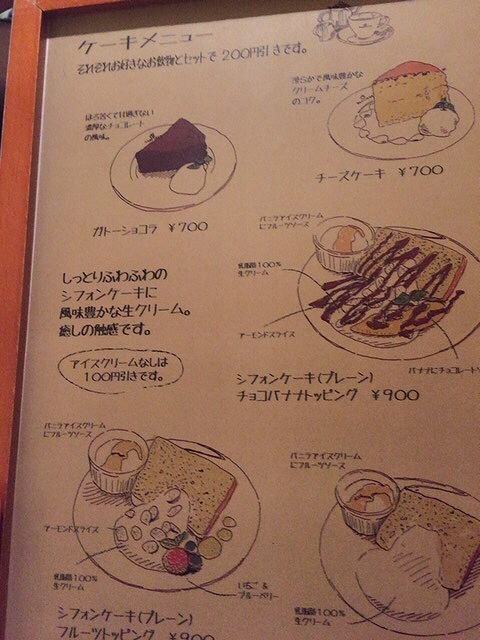 ケーキメニュー
それぞれお好きなお飲物とセットで 200円引きです。
ほろ苦くて甘過ぎない
濃厚なチョコレート
の風味。
ガトーショコラ ¥700
滑らかで風味豊かな
クリームチーズ
のコク。
チーズケーキ ¥700
しっとりふわふわの
シフォンケーキに
風味豊かな生クリーム。
癒しの触感です。
アイスクリームなしは
100円引きです。
バニラアイスクリーム
にフルーツソース
乳脂肪100%
生クリーム
アーモンドスライス
バナナにチョコレート
シフォンケーキ(プレーン)
チョコバナナトッピング ¥900
バニラアイスクリーム
にフルーツソース
アーモンドスライス
乳脂肪100%
生クリーム
いちご &
ブルーベリー
シフォンケーキ(プレーン)
フルーツトッピング ¥900
バニラアイスクリーム
にフルーツソース
乳脂肪100%
生クリーム